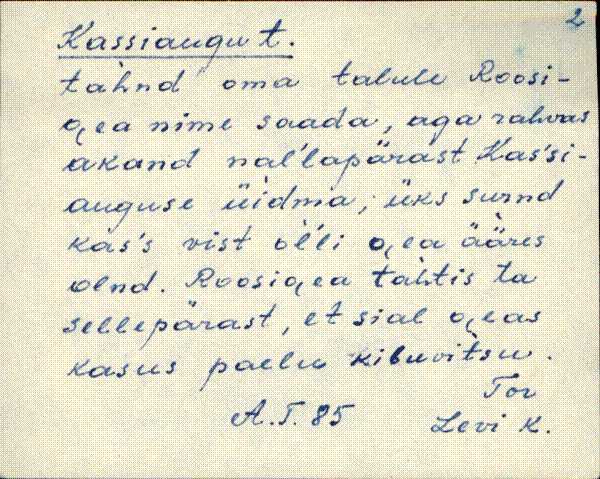 2
Kassiaugu t.
tàhnd oma talule Roosi-
oja nime saada, aga rahvas
akand nal'lapärast Kas'si-
auguse üidma, üks surnd
kas's vist òl'li oja ääres
olnd. Roosioja tàhtis ta
sellepärast, et sial ojas
kasus paelu kibuvìtsu.
Tor
A.T. 85 Levi k.